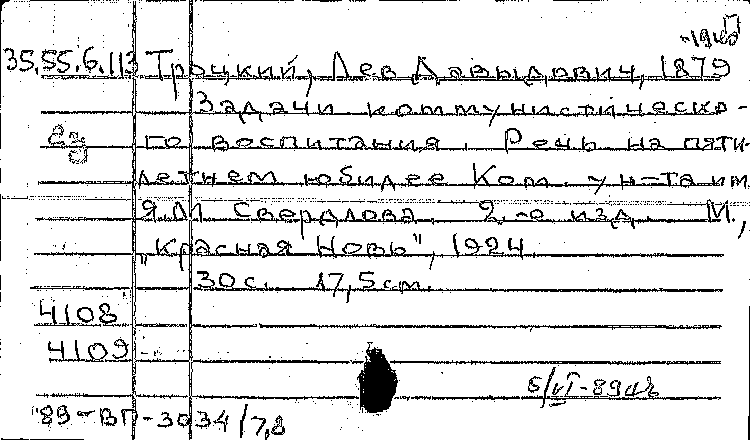 -1940
35.55.6.113 Троцкий, Лев Давыдович, 1879
Задачи коммунистическо-
го воспитания. Речь на пяти-
летнем юбилее Ком. ун-та им.
Я.М Свердлова. 2-е изд. М.,
„Красная Новь", 1924.
30 с. 17,5 см.
4108
4109
5/VI-89
89-ВП-3034/7,8